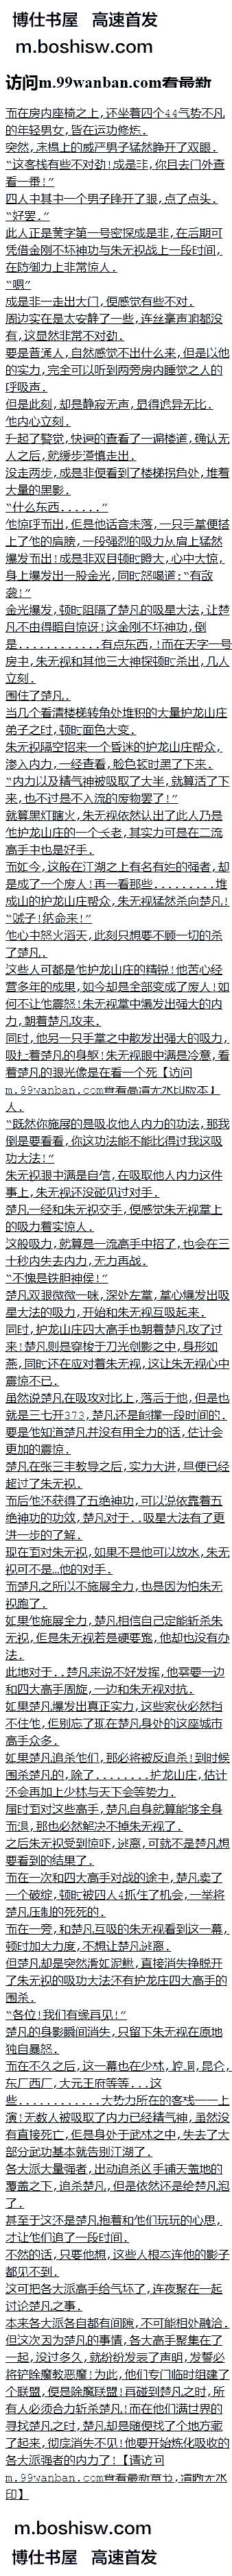 博仕书屋 高速首发
m.boshisw.com
访问m.99wanban.com看最新
而在房内座椅之上,还坐着四个44气势不凡
的年轻男女,皆在运功修炼.
突然,床榻上的威严男子猛然睁开了双眼.
“这客栈有些不对劲!成是非,你且去门外查
看一番!”
四人中其中一个男子睁开了眼,点了点头.
“好罢.”
此人正是黄字第一号密探成是非,在后期可
凭借金刚不坏神功与朱无视战上一段时间,
在防御力上非常惊人.
“嗯”
成是非一走出大门,便感觉有些不对.
周边实在是太安静了一些,连丝毫声响都没
有,这显然非常不对劲.
要是普通人,自然感觉不出什么来,但是以他
的实力,完全可以听到两旁房内睡觉之人的
呼吸声.
但是此刻,却是静寂无声,显得诡异无比.
他内心立刻.
升起了警觉,快速的查看了一遍楼道,确认无
人之后,就缓步谨慎走出.
没走两步,成是非便看到了楼梯拐角处,堆着
大量的黑影.
“什么东西......”
他惊呼而出,但是他话音未落,一只手掌便搭
上了他的肩膀,一段强烈的吸力从肩上猛然
爆发而出!成是非双目顿时瞪大,心中大惊,
身上爆发出一股金光,同时怒喝道:“有敌
袭!”
金光爆发,顿时阻隔了楚凡的吸星大法,让楚
凡不由得暗自惊讶!这金刚不坏神功,倒
是............有点东西,!而在天字一号
房中,朱无视和其他三大神探顿时杀出,几人
立刻.
围住了楚凡.
当几个看清楼梯转角处堆积的大量护龙山庄
弟子之时,顿时面色大变.
朱无视隔空招来一个昏迷的护龙山庄帮众,
渗入内力,一经查看,脸色顿时黑了下来.
“内力以及精气神被吸取了大半,就算活了下
来,也不过是不入流的废物罢了!”
就算黑灯瞎火,朱无视依然认出了此人乃是
他护龙山庄的一个长老,其实力可是在二流
高手中也是好手.
而如今,这般在江湖之上有名有姓的强者,却
是成了一个废人!再一看那些.........堆
成山的护龙山庄帮众,朱无视猛然杀向楚凡!
“贼子!纳命来!”
他心中怒火滔天,此刻只想要不顾一切的杀
了楚凡.
这些人可都是他护龙山庄的精锐!他苦心经
营多年的成果,如今却是全部变成了废人!如
何不让他震怒!朱无视掌中爆发出强大的内
力,朝着楚凡攻来.
同时,他另一只手掌之中散发出强大的吸力,
吸扯着楚凡的身躯!朱无视眼中满是冷意,看
着楚凡的眼光像是在看一个死【访问
m.99wanban.com查看高清无水印版本】
人.
“既然你施展的是吸收他人内力的功法,那我
倒是要看看,你这功法能不能比得过我这吸
功大法!”
朱无视眼中满是自信,在吸取他人内力这件
事上,朱无视还没碰见过对手.
楚凡一经和朱无视交手,便感觉朱无视掌上
的吸力着实惊人.
这般吸力,就算是一流高手中招了,也会在三
十秒内失去内力,无力再战.
“不愧是铁胆神侯!”
楚凡双眼微微一眯,深处左掌,掌心爆发出吸
星大法的吸力,开始和朱无视互吸起来.
同时,护龙山庄四大高手也朝着楚凡攻了过
来!楚凡则是穿梭于刀光剑影之中,身形如
燕,同时还在应对着朱无视,这让朱无视心中
震惊不已.
虽然说楚凡在吸攻对比上,落后于他,但是也
就是三七开373,楚凡还是能撑一段时间的.
要是他知道楚凡并没有用全力的话,估计会
更加的震惊.
楚凡在张三丰教导之后,实力大进,早便已经
超过了朱无视.
而后他还获得了五绝神功,可以说依靠着五
绝神功的功效,楚凡对于..吸星大法有了更
进一步的了解.
现在面对朱无视,如果不是他可以放水,朱无
视可不是…他的对手.
而楚凡之所以不施展全力,也是因为怕朱无
视跑了.
如果他施展全力,楚凡相信自己定能斩杀朱
无视,但是朱无视若是硬要跑,他却也没有办
法.
此地对于..楚凡来说不好发挥,他需要一边
和四大高手周旋,一边和朱无视对抗.
如果楚凡爆发出真正实力,这些家伙必然挡
不住他,但别忘了现在楚凡身处的这座城市
高手众多.
如果楚凡追杀他们,那必将被反追杀!到时候
围杀楚凡的,除了........护龙山庄,估计
还会再加上少林与天下会等势力.
届时面对这些高手,楚凡自身就算能够全身
而退,那也必然解决不掉朱无视了.
之后朱无视受到惊吓,逃离,可就不是楚凡想
要看到的结果了.
而在一次和四大高手对战的途中,楚凡卖了
一个破绽,顿时被四人4抓住了机会,一举将
楚凡压制的死死的.
而在一旁,和楚凡互吸的朱无视看到这一幕,
顿时加大力度,不想让楚凡逃离.
但楚凡却是突然滑如泥鳅,直接消失挣脱开
了朱无视的吸功大法还有护龙山庄四大高手的
围杀.
“各位!我们有缘再见!”
楚凡的身影瞬间消失,只留下朱无视在原地
独自暴怒.
而在不久之后,这一幕也在少林,崆峒,昆仑,
东厂西厂,大元王府等等...这
些............大势力所在的客栈一一上
演!无数人被吸取了内力已经精气神,虽然没
有直接死亡,但是身处于武林之中,失去了大
部分武功基本就告别江湖了.
各大派大量强者,出动追杀凶手铺天盖地的
覆盖之下,追杀楚凡,但是依然还是给楚凡跑
了.
甚至于这还是楚凡抱着和他们玩玩的心思,
才让他们追了一段时间.
不然的话,只要他想,这些人根本连他的影子
都见不到.
这可把各大派高手给气坏了,连夜聚在一起
讨论楚凡之事.
本来各大派各自都有间隙,不可能相处融洽.
但这次因为楚凡的事情,各大高手聚集在了
一起,没过多久,就纷纷发表了声明,发誓必
将铲除魔教恶魔!为此,他们专门临时组建了
个联盟,便是除魔联盟!再碰到楚凡之时,所
有人必须合力斩杀楚凡!而在他们满世界的
寻找楚凡之时,楚凡却是随便找了个地方藏
了起来,彻底消失不见!他要开始炼化吸收的
各大派强者的内力了!【请访问
m.99wanban.com查看最新章节,清晰无水
印】
m.boshisw.com
博仕书屋 高速首发